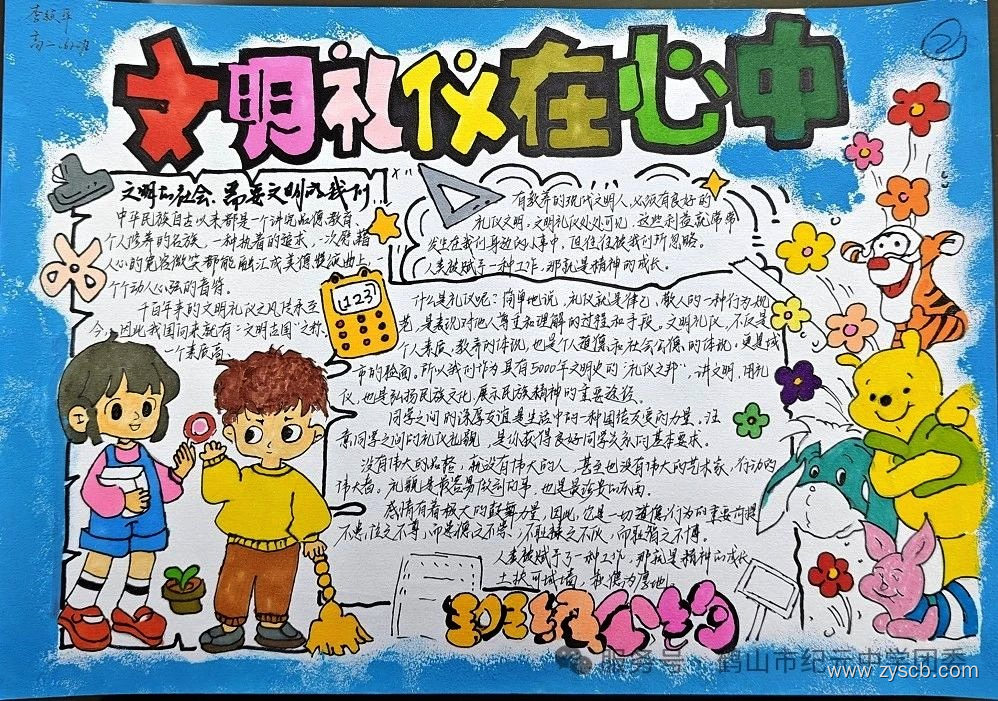 高一
②
文明礼仪在心中
文明的社会、需要文明的我们!
中华民族自古以来都是一个讲究品德教育、
个人修养的名族，一种执着的追求，一次慰藉
人心的宽容微笑都能融汇成美德提纹曲上，一
个个动人心弦的音符。
千百年来的文明礼仪之风传承至
今，因此我国向来就有"文明古国"之称，
一个素质高、
有教养的现代文明人，必须有良好的
礼仪文明，文明礼仪处处可见，这些利益就常常
发生在我们身边的小事中，但往往被我们所忽略。
人类被赋予一种工作，那就是精神的成长。
123
什么是礼仪呢：简单地说，礼仪就是律己，敬人的一种行为规
范，是表现对他人尊重和理解的过程和手段。文明礼仪，不仅是
个人素质、教养的体现，也是个人道德和社会公德的体现，更是城
市的脸面，所以我们作为具有5000年文明史的"礼仪之邦"，讲文明、用礼
仪，也是弘扬民族文化、展示民族精神的重要途径。
同学之间的深厚友谊是生活中的一种团结友爱的力量，注
意同学之间的礼仪礼貌，是你获得良好同学关系的基本要求。
没有伟大的品格，就没有伟大的人，甚至也没有伟大的艺术家，行动的
伟大者。礼貌是最容易做到的事，也是最珍贵的东西。
感情有着极大的鼓舞力量，因此，它是一切道德行为的重要前提
不患位之不尊，而患德之不崇，不耻禄之不伙，而耻智之不博。
人类被赋予了一种工作，那就是精神的成长
土扶可城墙，积德为厚地。
班级公约
服务号·鹤山市纪元中学团委
www.zyscb.com